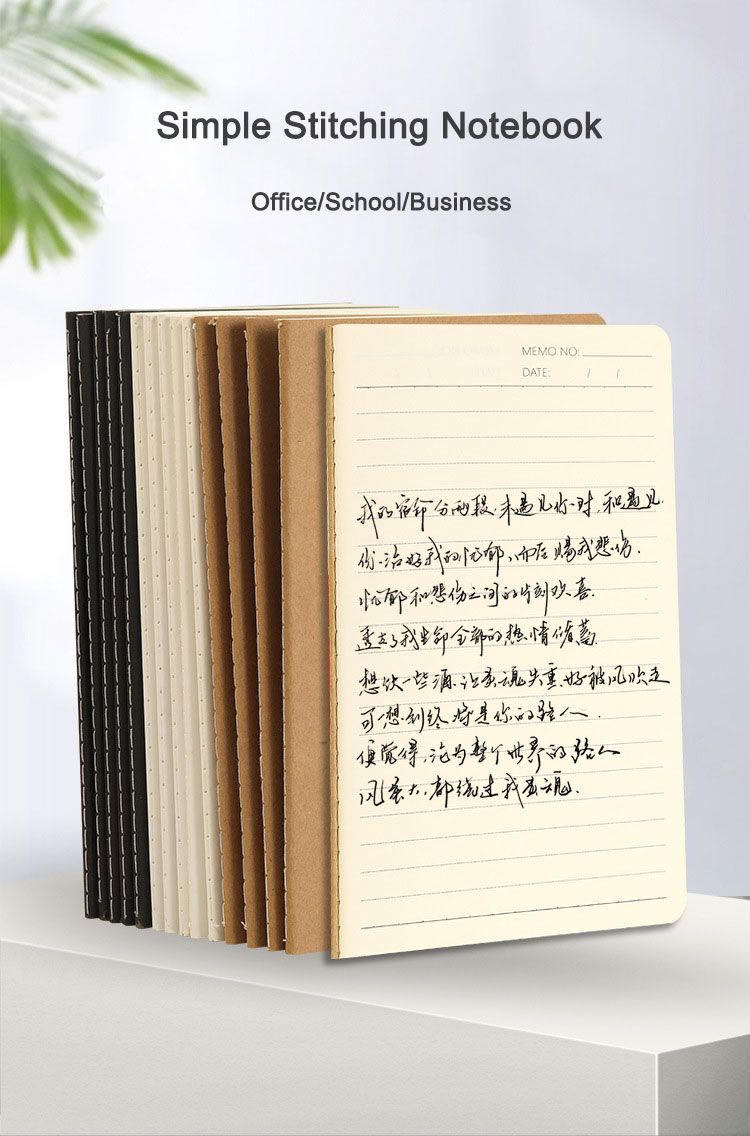 Simple Stitching Notebook
Office/School/Business
MEMO NO:
DATE: / /
我的宿命分两段,未遇见你时,和遇见
你.治好我的忧郁,而后赐我悲伤.
忧郁和悲伤之间的片刻欢喜.
透支了我生命全部的热情储蓄.
想饮一些酒,让灵魂失重,好被风吹走
可一想到终将是你的路人.
便觉得,沦为整个世界的路人
风虽大,都绕过我灵魂.